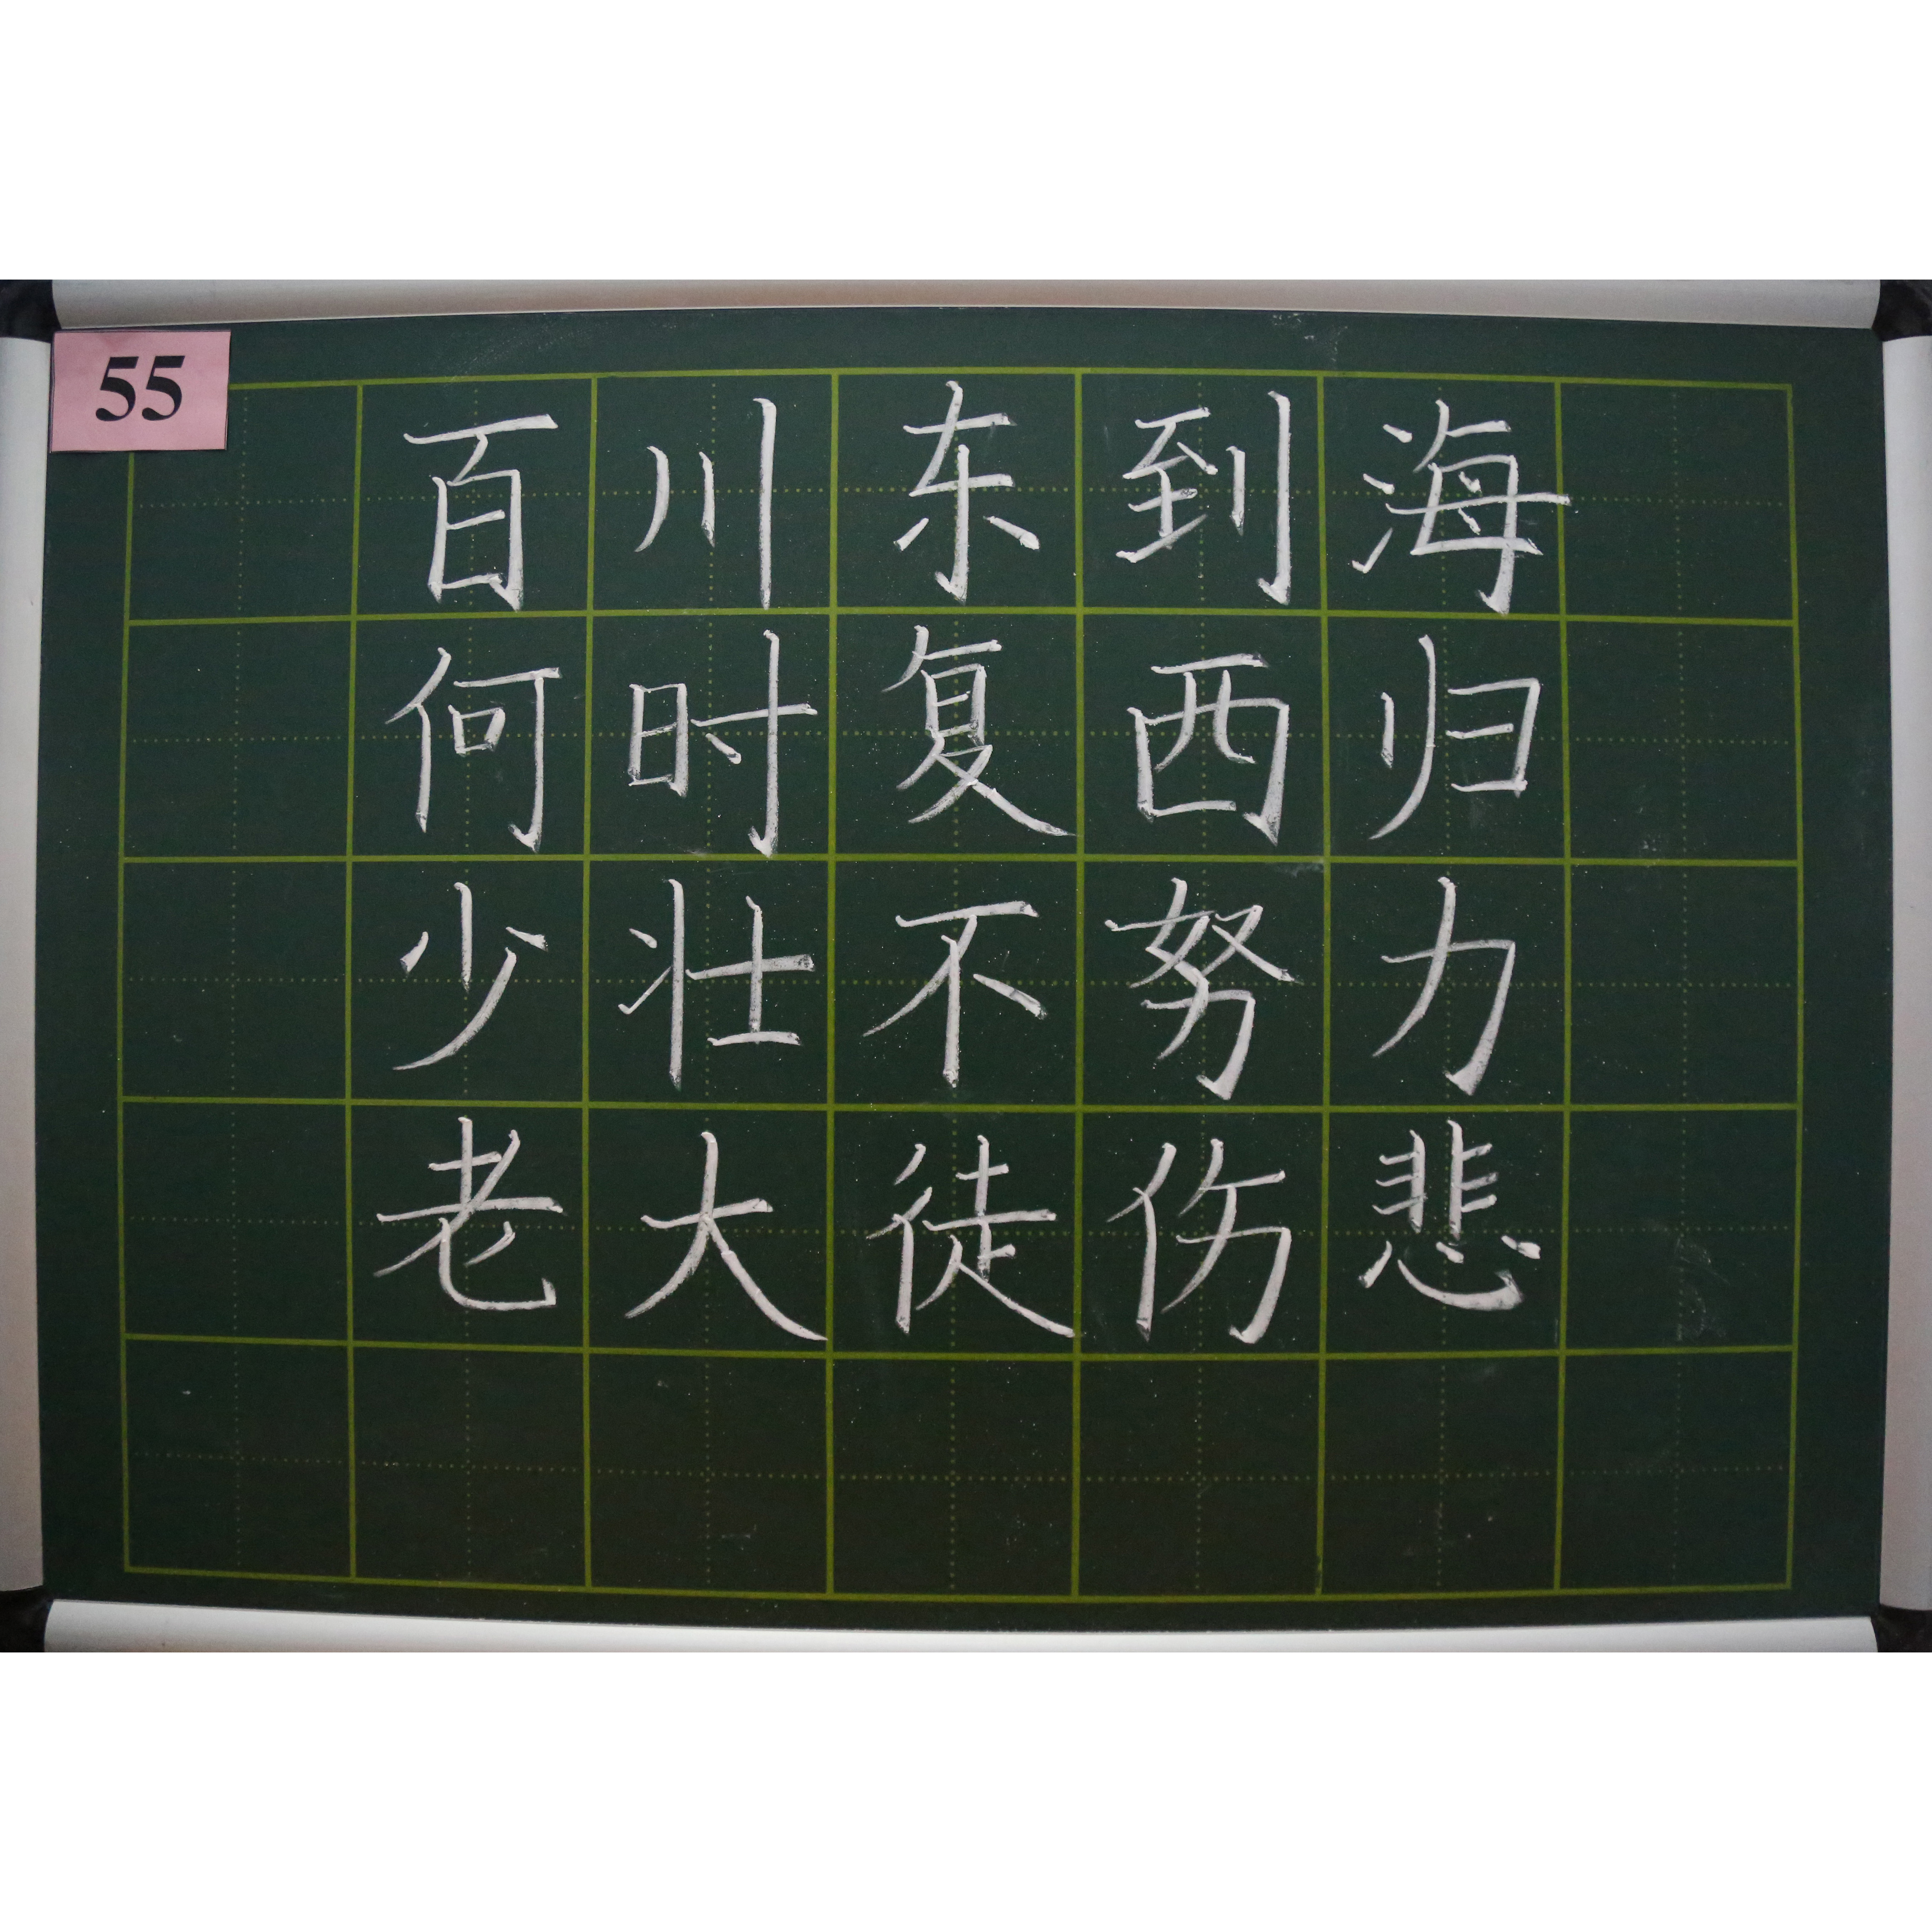 55
百川东到海
何时复西归
少壮不努力
老大徒伤悲